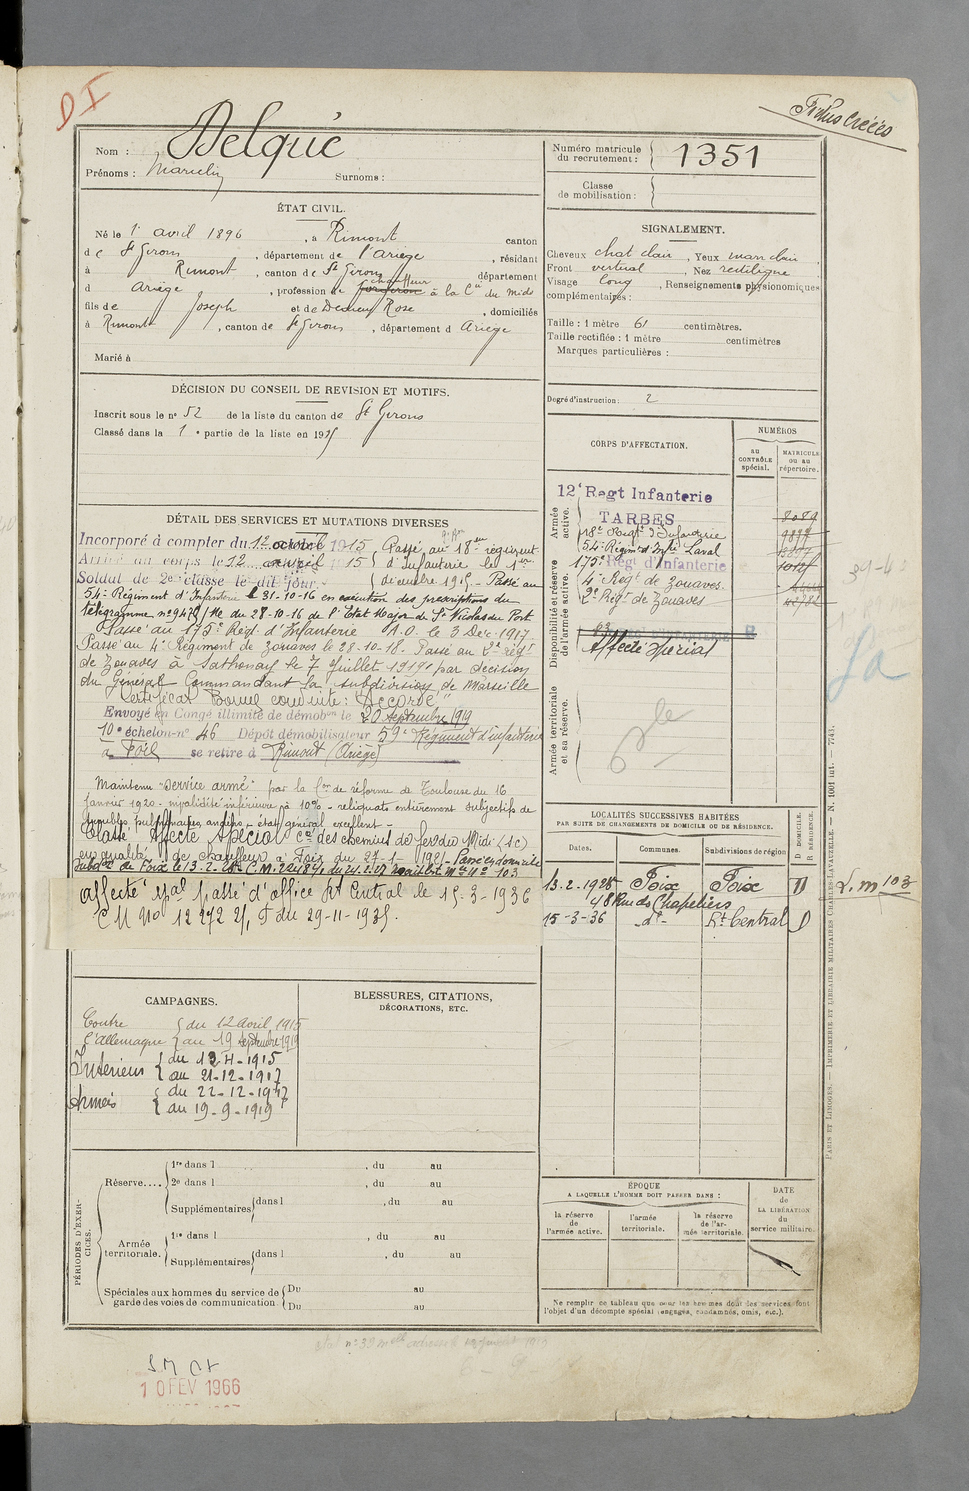 D I
Fiches créées
Nom : Delqué
Prénoms : Marcelin Surnoms :
Numéro matricule du recrutement : 1351
Classe de mobilisation :
ÉTAT CIVIL.
Né le 1er avril 1896, à Rimont canton
de St Girons, département de l'Ariège, résidant
à Rimont, canton de St Girons département
d Ariège, profession de forgeron chauffeur à la Cie du Midi
fils de Joseph et de Rose, domiciliés
à Rimont, canton de St Girons, département d Ariège
Marié à
SIGNALEMENT.
Cheveux chat clair, Yeux marr clair,
Front vertical, Nez rectiligne
Visage long, Renseignements physionomiques
complémentaires :
Taille : 1 mètre 61 centimètres.
Taille rectifiée : 1 mètre centimètres
Marques particulières :
Degré d'instruction : 2
DÉCISION DU CONSEIL DE REVISION ET MOTIFS.
Inscrit sous le n° 52 de la liste du canton de St Girons
Classé dans la 1e partie de la liste en 1915
CORPS D'AFFECTATION.
NUMÉROS
au CONTRÔLE spécial.
MATRICULE ou au répertoire.
Armée active.
12e Regt Infanterie
TARBES
18e Regt d'Infanterie
54e Régiment d'Infie Laval
175e Regt d'Infanterie
4e Regt de Zouaves
2e Regt de Zouaves
Disponibilité et réserve de l'armée active.
Affecté spécial
Armée territoriale et sa réserve.
DÉTAIL DES SERVICES ET MUTATIONS DIVERSES
Incorporé à compter du 12 1915 Passé au 18me régiment
Arrivé au corps le 12 avril 1915 d'Infanterie le 1er
Soldat de 2e classe le dit jour. décembre 1915. Passé au
54e Régiment d'Infanterie le 31-10-16 en exécution des prescriptions du
télégramme n° 9474 du 28-10-16 de l'Etat Major de St Nicolas du Port
Passé au 175e Régt d'Infanterie A.O. le 3 Déc. 1917
Passé au 4e Régiment de Zouaves le 28-10-18. Passé au 2e régt
de Zouaves à Sathonay le 7 Juillet 1919 par décision
du Général Commandant la subdivision de Marseille
Certificat Bonne conduite : "Accordé"
Envoyé en Congé illimité de démobon le 20 septembre 1919
10e échelon n° 46 Dépôt démobilisateur 59e Régiment d'infanterie
à Foix se retire à Rimont (Ariège)
Maintenu "service armé" par la Con de réforme de Toulouse du 16
Janvier 1920 - invalidité inférieure à 10% - reliquats entièrement subjectifs de
troubles pulmonaires anciens - état général excellent -
Classé Affecté Spécial Cie des chemins de fer du Midi (sc)
en qualité de chauffeur à Foix du 27-1-1921 - Passé en domicile
Subdon de Foix le 13-2-28
affecté spal passé d'office Rt Central le 15-3-1936
C M No 12272 2/ du 29-11-1935.
LOCALITÉS SUCCESSIVES HABITÉES
PAR SUITE DE CHANGEMENTS DE DOMICILE OU DE RÉSIDENCE.
Dates. Communes. Subdivisions de région D DOMICILE. R RÉSIDENCE.
13-2-1928 Foix Foix D
48 Rue des Chapeliers
15-3-36 -do- Rt Central D
CAMPAGNES.
Contre l'Allemagne du 12 Avril 1915
au 19 Septembre 1919
Intérieur du 12-4-1915
au 21-12-1917
Armées du 22-12-1917
au 19-9-1919
BLESSURES, CITATIONS,
DÉCORATIONS, ETC.
PÉRIODES D'EXERCICES.
Réserve.... 1re dans l , du au
2e dans l , du au
Supplémentaires dans l , du au
Armée territoriale. 1re dans l , du au
Supplémentaires dans l , du au
Spéciales aux hommes du service de garde des voies de communication. Du au
Du au
ÉPOQUE
A LAQUELLE L'HOMME DOIT PASSER DANS :
la réserve de l'armée active.
l'armée territoriale.
la réserve de l'armée territoriale.
DATE de LA LIBÉRATION du service militaire.
Ne remplir ce tableau que pour les hommes dont des services font
l'objet d'un décompte spécial (engagés, condamnés, omis, etc.).
PARIS ET LIMOGES. — IMPRIMERIE ET LIBRAIRIE MILITAIRES CHARLES-LAVAUZELLE. — N. 1001 int. — 7743.
10 FEV 1966